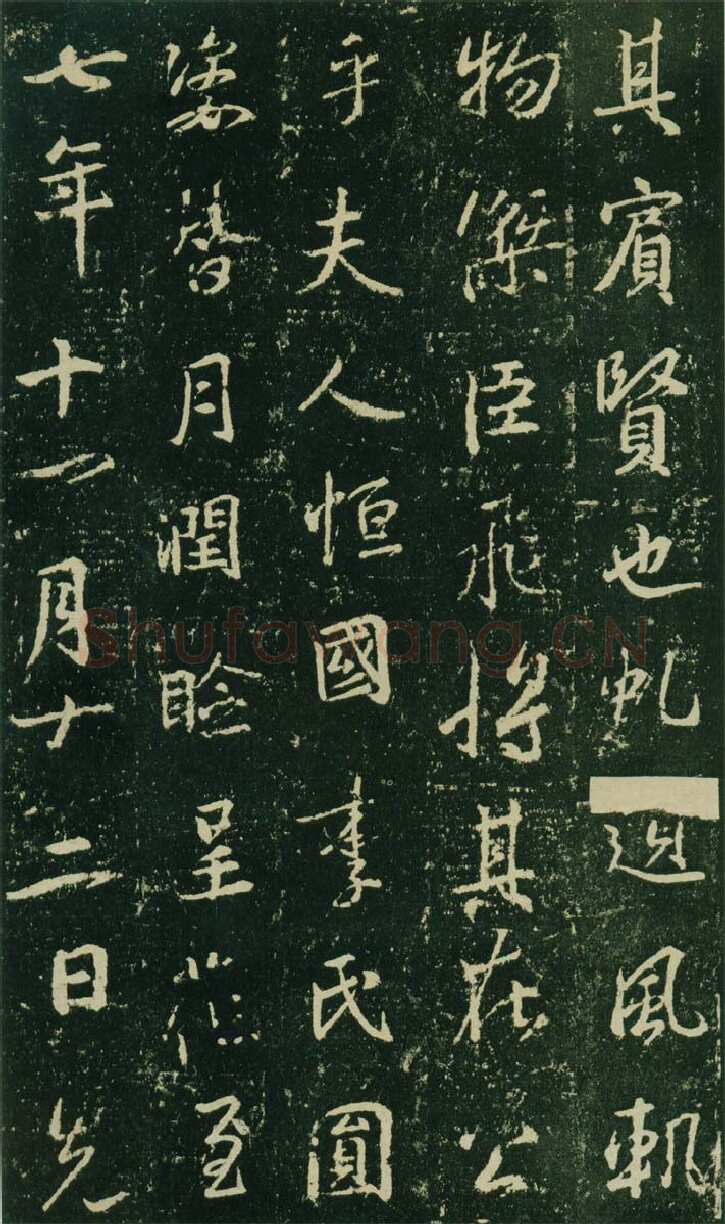 其賓賢也虬風軌
物傑臣飛將其在公
乎夫人恒國李氏圓
姿替月潤瞼呈至
七年十一月十二日先
Shufawang.CN